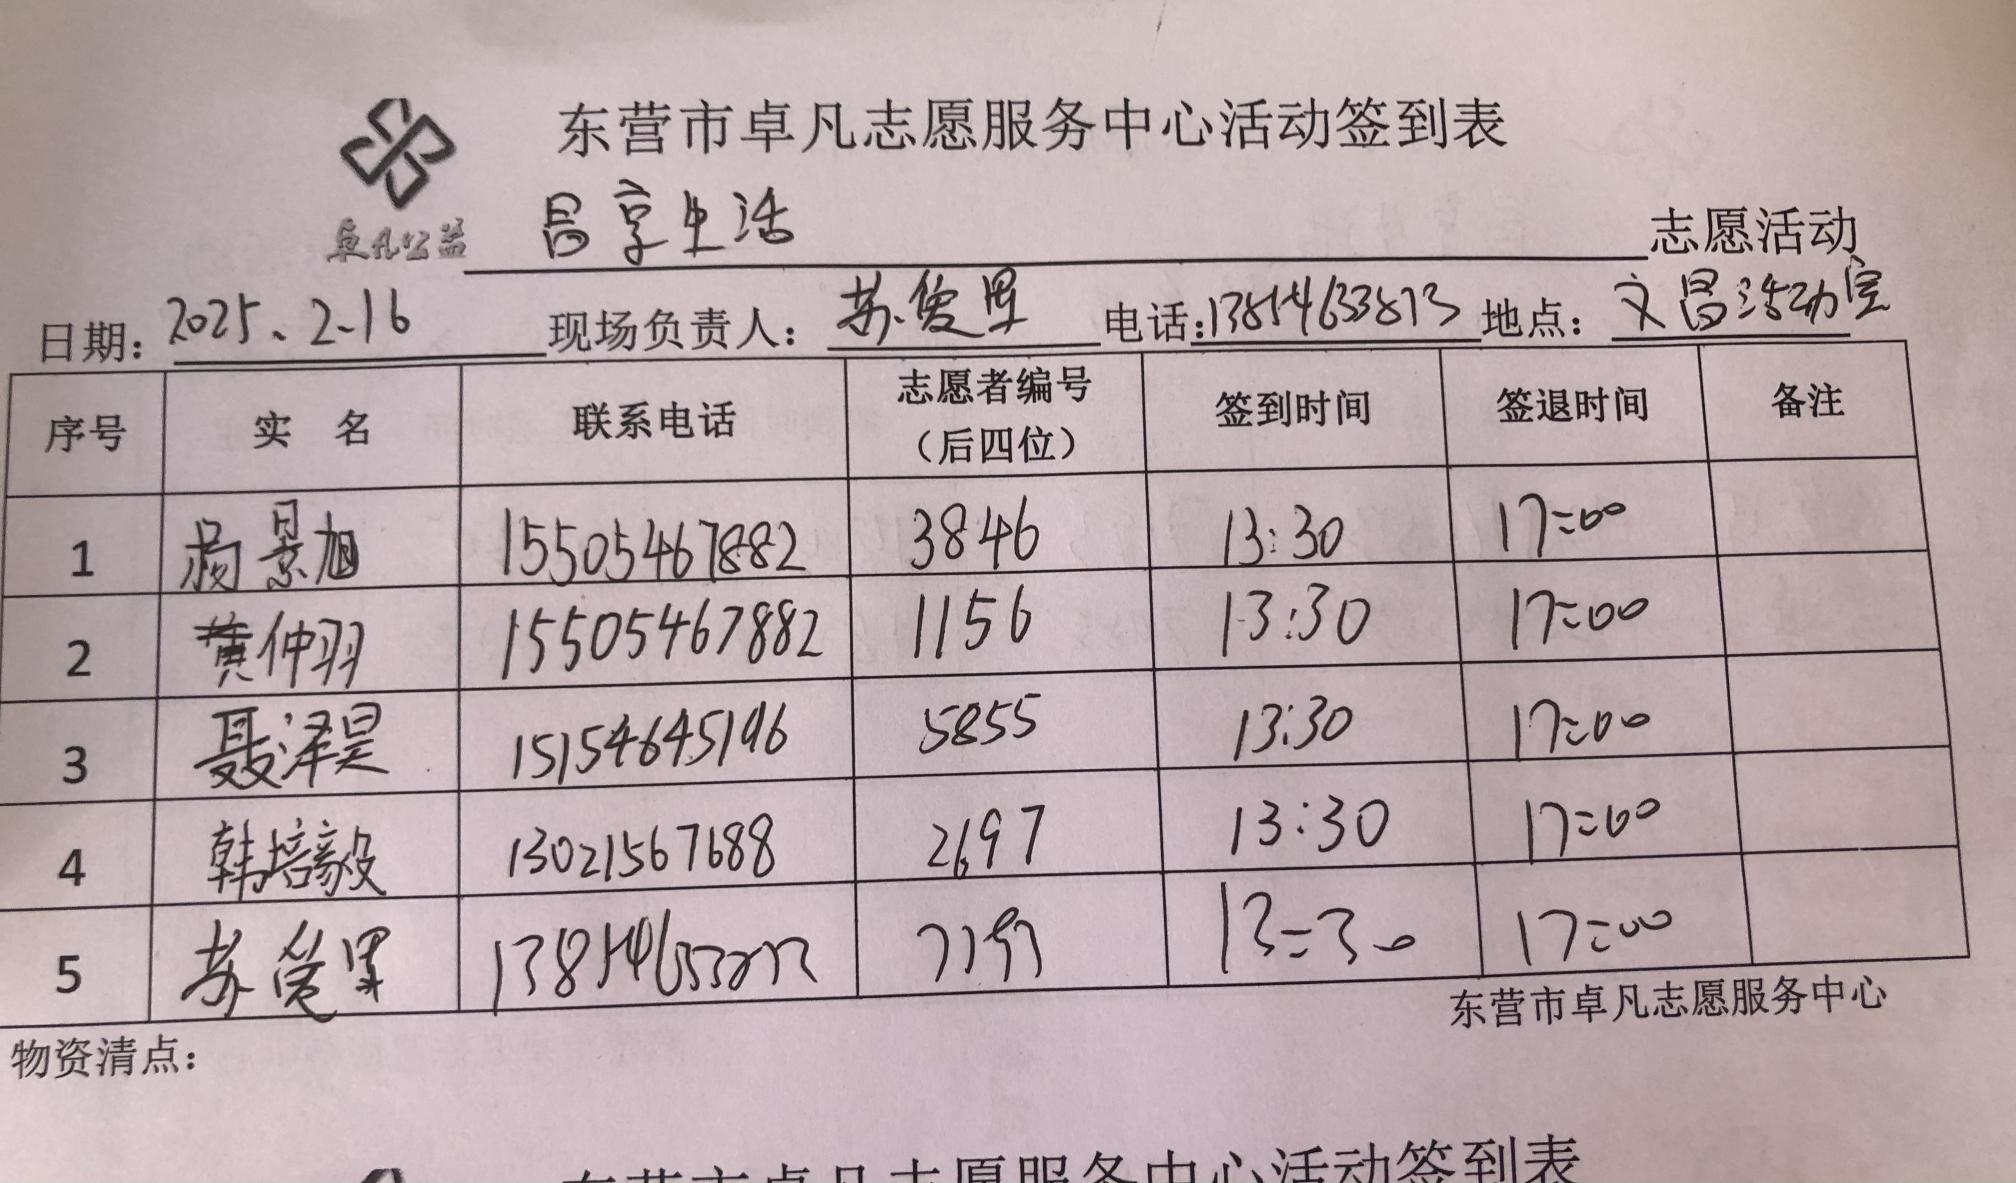 东营市卓凡志愿服务中心活动签到表
卓凡公益
昌享生活 志愿活动
日期: 2025.2-16 现场负责人: 苏俊里 电话:13854633873 地点: 文昌活动室
序号 实名 联系电话 志愿者编号(后四位) 签到时间 签退时间 备注
1 杨景旭 15505467882 3846 13:30 17=00
2 黄仲羽 15505467882 1156 13:30 17=00
3 聂泽昊 15154645196 5855 13:30 17=00
4 韩培毅 13021567688 2697 13:30 17=00
5 苏 13=30 17=00
东营市卓凡志愿服务中心
物资清点:
东营市卓凡志愿服务中心活动签到表